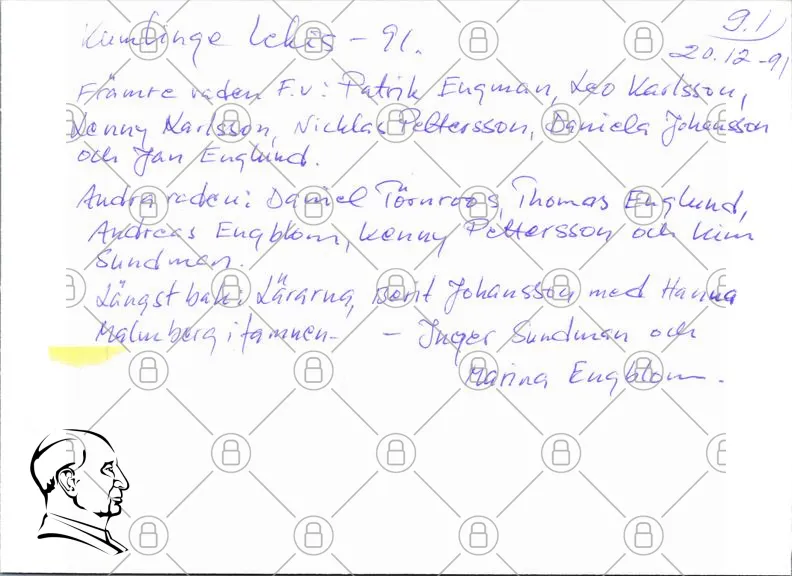 Kumlinge Lekis - 91.
9.1
20.12-91
Främre raden F.v: Patrik Engman, Leo Karlsson,
Kenny Karlsson, Nicklas Pettersson, Daniela Johansson
och Jan Englund.
Andra raden: Daniel Törnroos, Thomas Englund,
Andreas Engblom, Kenny Pettersson och Kim
Sundman.
Längst bak: Lärarna, Berit Johansson med Hanna
Malmberg i famnen. - Inger Sundman och
Marina Engblom.